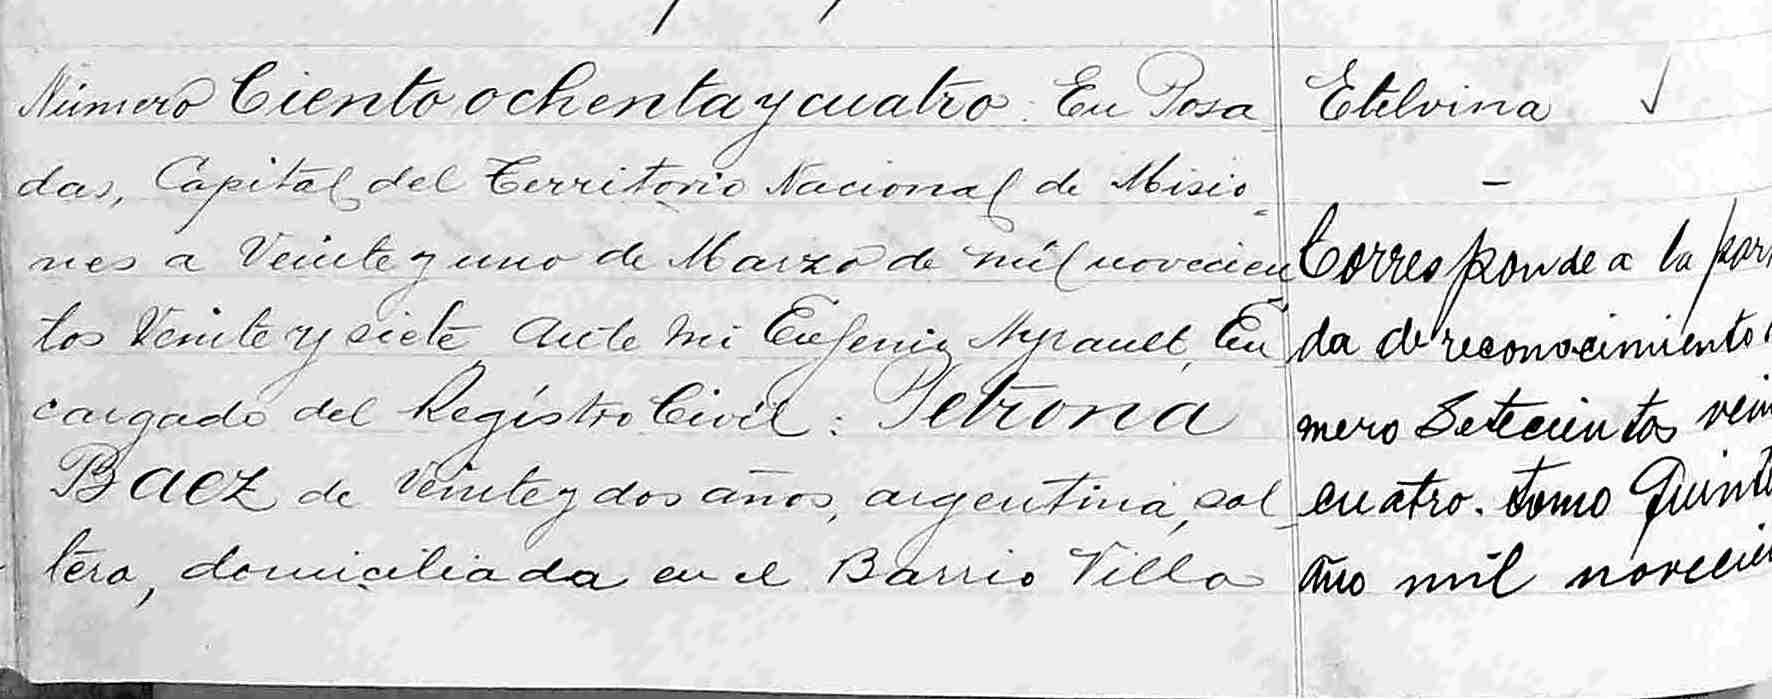 Número Ciento ochenta y cuatro: En Posa
das, Capital del Territorio Nacional de Misio-
nes a Veinte y uno de Marzo de mil novecien
tos Veinte y siete Ante mi Eugenio En
cargado del Registro Civil: Petrona
Baez de Veinte y dos años, argentina, sol
tera, domiciliada en el Barrio Villa
Etelvina
-
Corresponde a la par
da de reconocimiento
mero Setecientos vein
cuatro. tomo Quint
año mil novecien